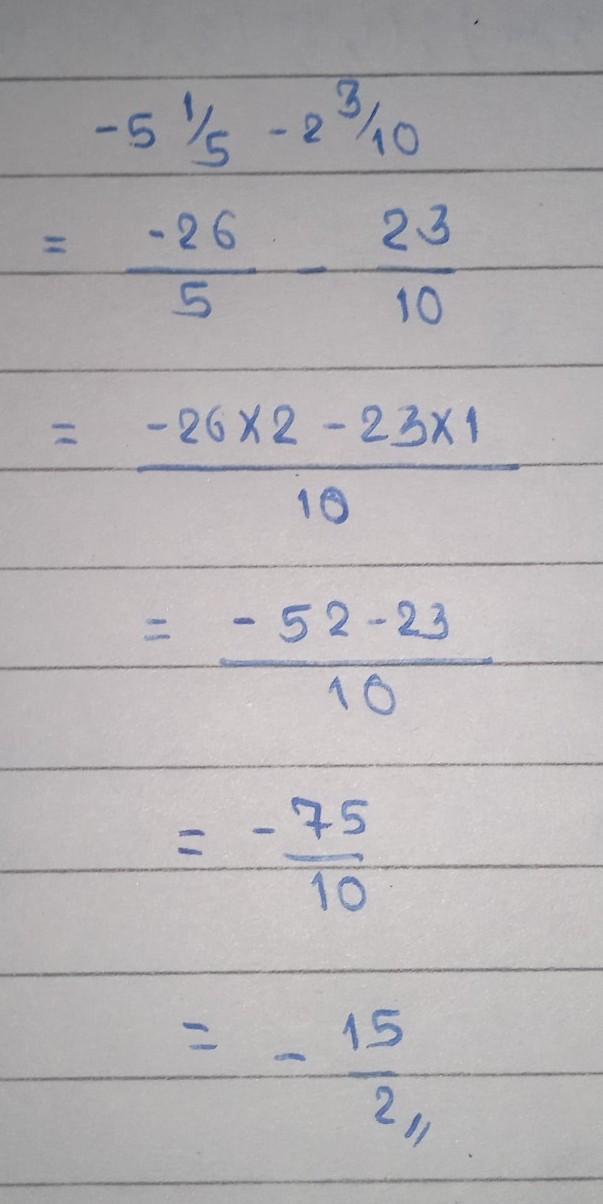 -5 1/5 - 2 3/10
= -26/5 - 23/10
= -26×2 - 23×1/10
= -52-23/10
= -75/10
= -15/2 //